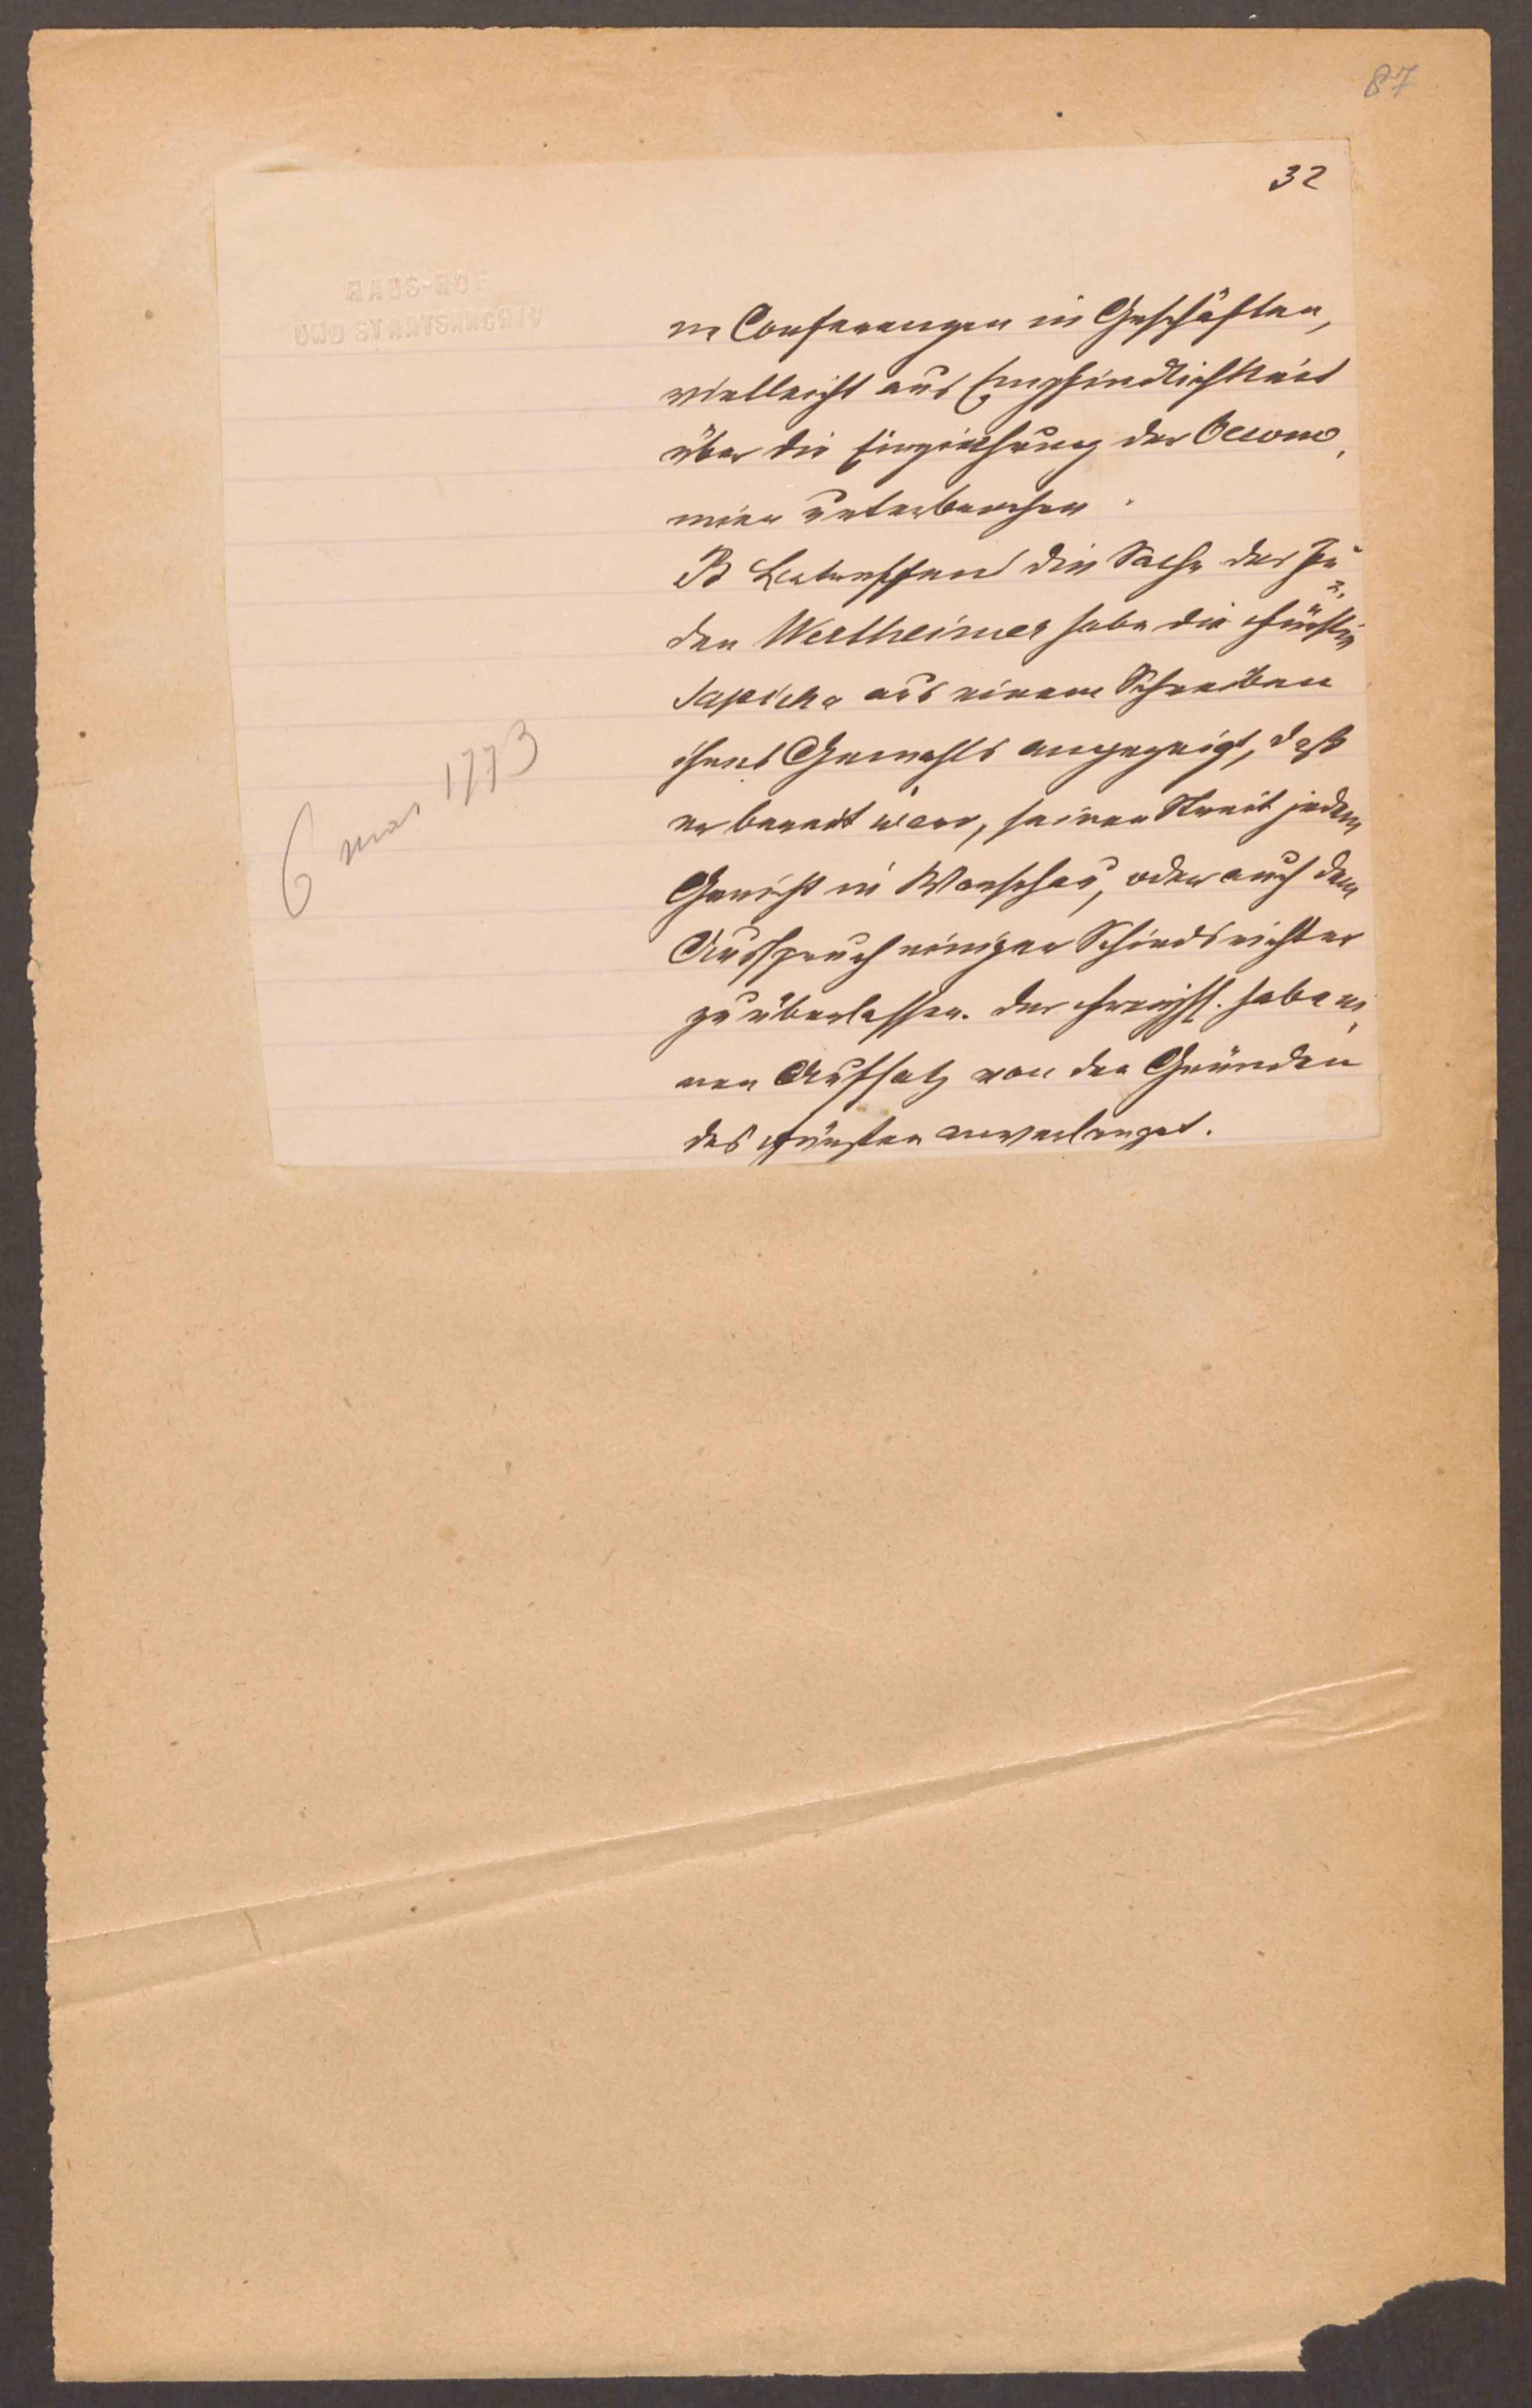 87
32
HAUS-HOF
UND STAATSARCHIV
er Conferenzen in Geschäften,
vielleicht aus Empfindlichkeit
über die Einziehung der Oecono,
mien unterbrochen.
B Betreffend die Sache des Ju
den Wertheimer habe die Fürstin
Sapieha aus einem Schreiben
ihres Gemahls angezeigt, daß
er bereit wäre, seinen Streit jedem
Gericht in Warschau, oder auch dem
Ausspruch einiger Schiedsrichter
zu überlassen. der habe ei
nen Aufsatz von den Gründen
des Fürsten anverlanget.
6 1773